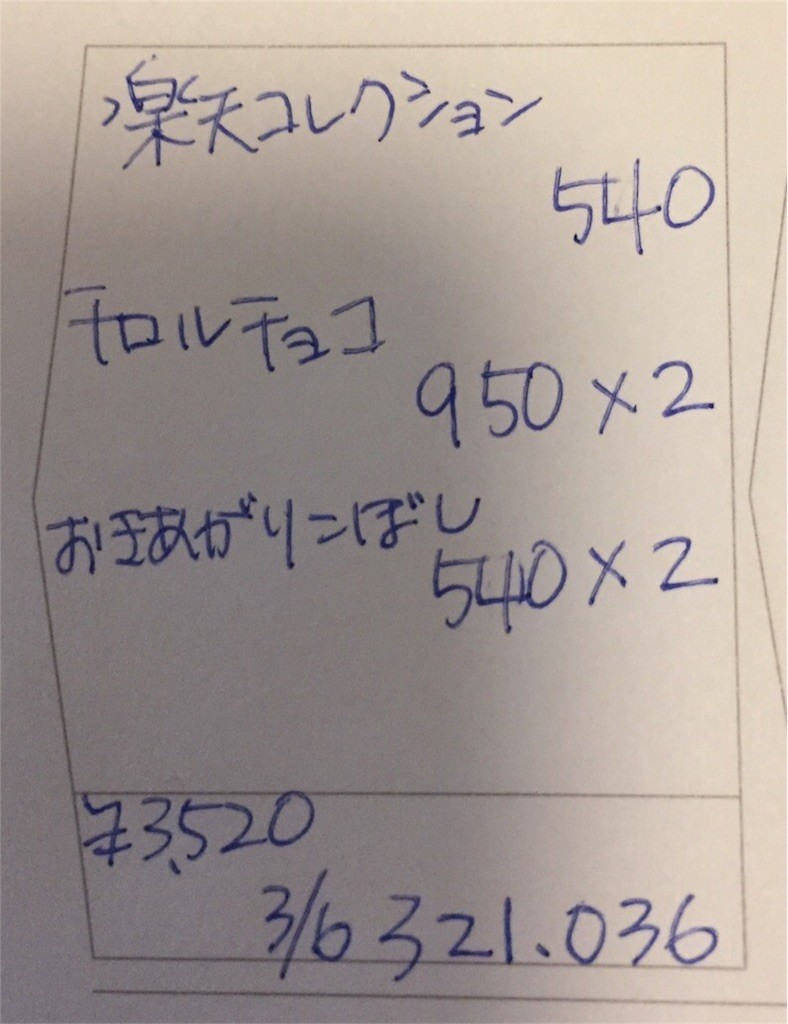 楽天コレクション
540
チロルチョコ
950×2
おきあがりこぼし
540×2
¥3,520
3/6 321.036